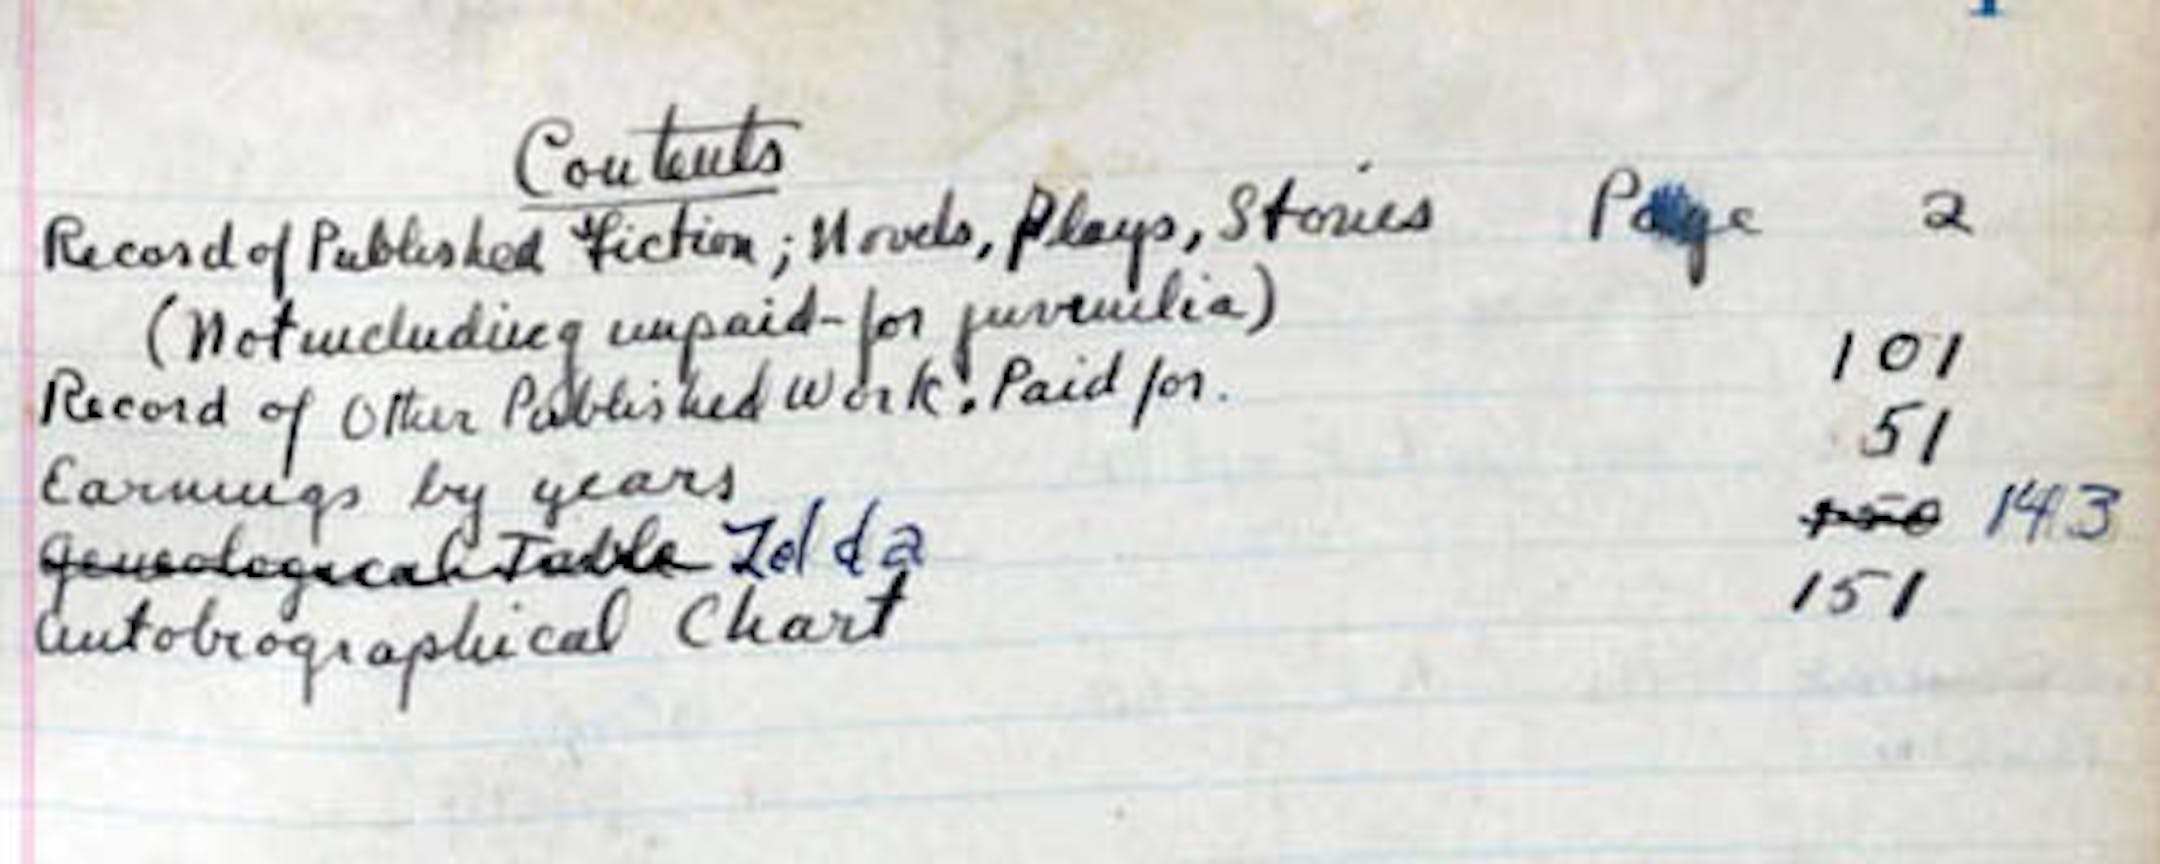 Contents
Record of Published Fiction; Novels, Plays, Stories Page 2
(Not including unpaid-for juvenilia)
Record of Other Published Work. Paid for. 101
Earnings by years 51
Geneological Table Zelda 143
Autobiographical Chart 151